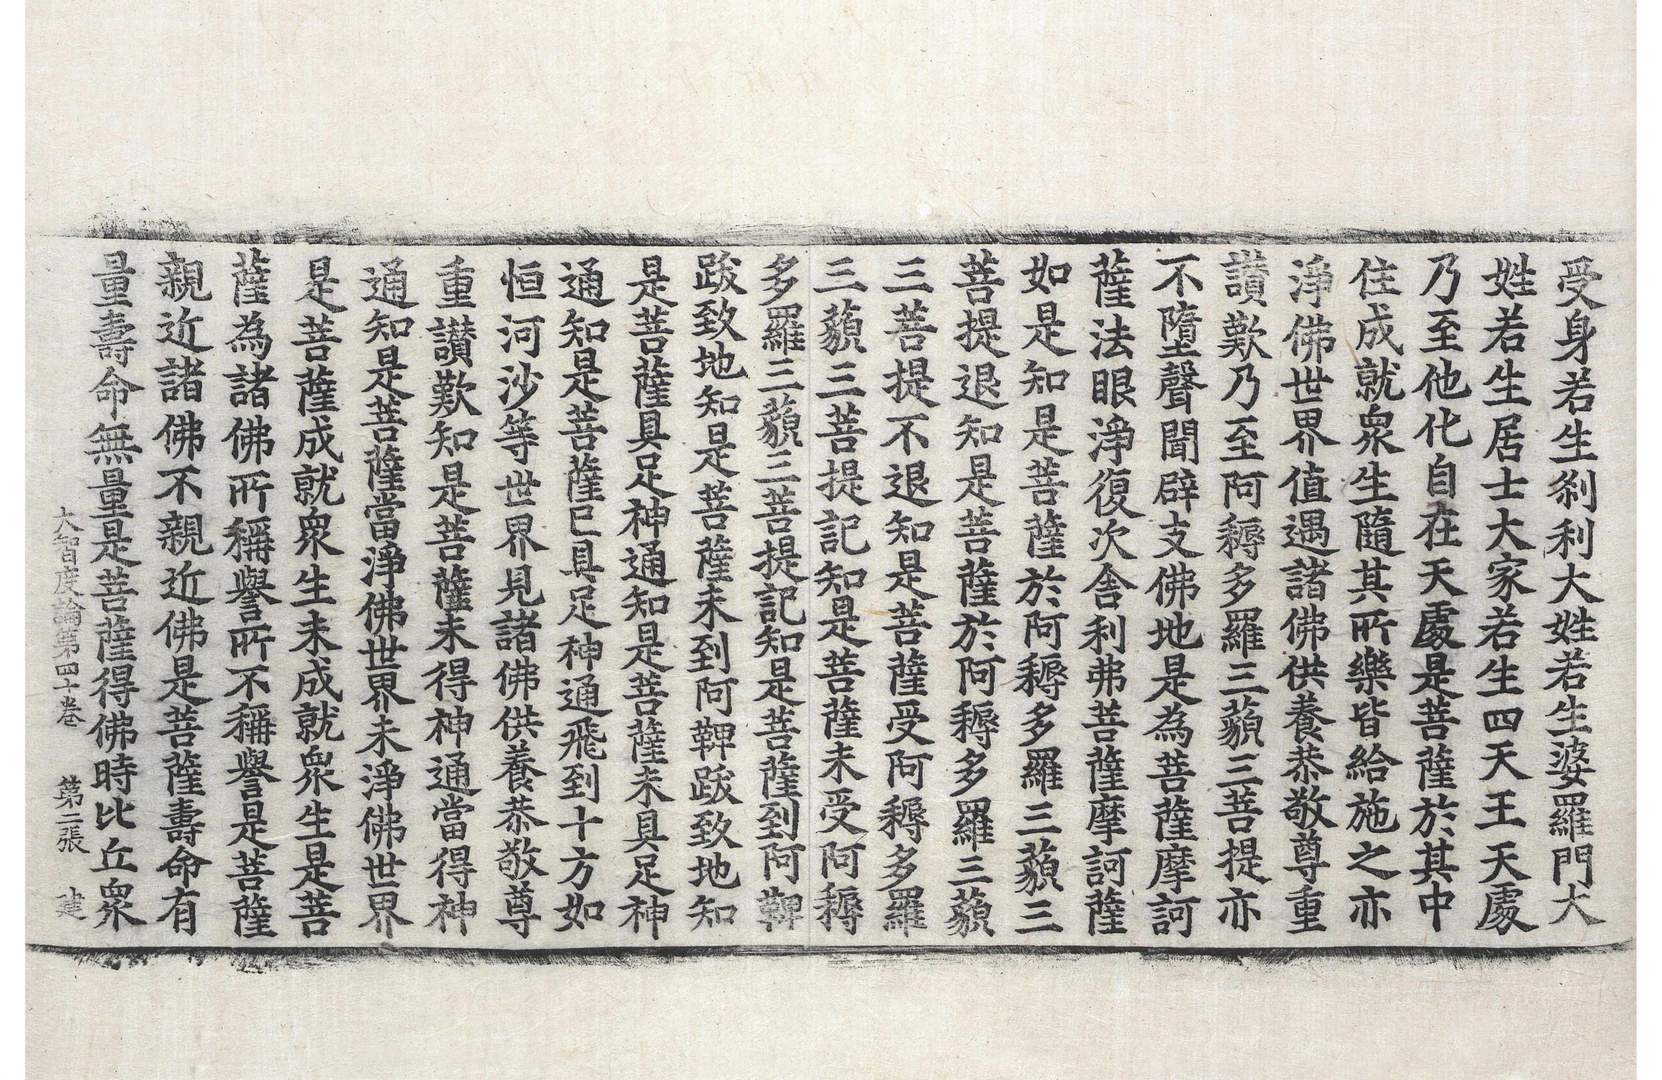 受身若生剎利大姓若生婆羅門大
姓若生居士大家若生四天王天處
乃至他化自在天處是菩薩於其中
住成就衆生隨其所樂皆給施之亦
淨佛世界值遇諸佛供養恭敬尊重
讃歎乃至阿耨多羅三藐三菩提亦
不墮聲聞辟支佛地是為菩薩摩訶
薩法眼淨復次舍利弗菩薩摩訶薩
如是知是菩薩於阿耨多羅三藐三
菩提退知是菩薩於阿耨多羅三藐
三菩提不退知是菩薩受阿耨多羅
三藐三菩提記知是菩薩未受阿耨
多羅三藐三菩提記知是菩薩到阿鞞
跋致地知是菩薩未到阿鞞跋致地知
是菩薩具足神通知是菩薩未具足神
通知是菩薩已具足神通飛到十方如
恒河沙等世界見諸佛供養恭敬尊
重讃歎知是菩薩未得神通當得神
通知是菩薩當淨佛世界未淨佛世界
是菩薩成就衆生未成就衆生是菩
薩為諸佛所稱譽所不稱譽是菩薩
親近諸佛不親近佛是菩薩壽命有
量壽命無量是菩薩得佛時比丘衆
大智度論第四十卷 第二張 建